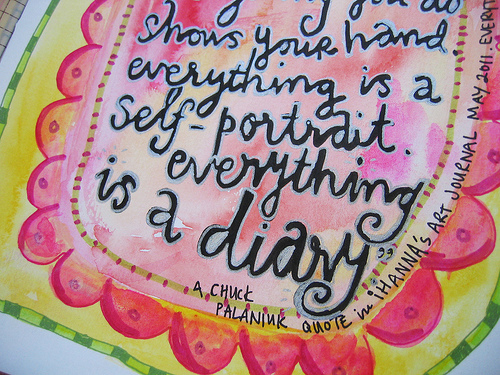 you do
shows your hand.
everything is a
self-portrait.
everything
is a diary”
A CHUCK
PALANIUK QUOTE in iHANNA's ART JOURNAL MAY 2011.